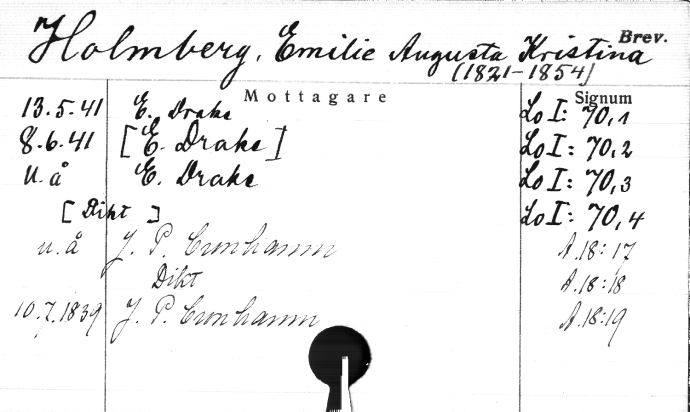 Brev.
Holmberg, Emilie Augusta Kristina
(1821-1854)
Mottagare Signum
13.5.41 E. Drake Lo I: 70,1
8.6.41 [E. Drake] Lo I: 70,2
u.å E. Drake Lo I: 70,3
[Dikt] Lo I: 70,4
u.å J. P. Cronhamn A.18:17
Dikt A.18:18
10.7.1839 J. P. Cronhamn A.18:19